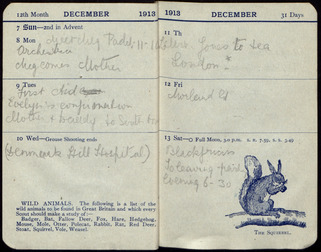 12th Month DECEMBER 1913
7 Sun—2nd in Advent
8 Mon Sketching Padd. 11-1
Orchestra
Meg comes Mother
9 Tues First Aid
Evelyn's confirmation
Mother &
10 Wed—Grouse Shooting ends
(Denmark Hill Hospital)
WILD ANIMALS. The following is a list of the
wild animals to be found in Great Britain and which every
Scout should make a study of:—
Badger, Bat, Fallow Deer, Fox, Hare, Hedgehog,
Mouse, Mole, Otter, Polecat, Rabbit, Rat, Red Deer,
Stoat, Squirrel, Vole, Weasel.
1913 DECEMBER 31 Days
11 Th Jones to tea
London
12 Fri
13 Sat—O Full Moon, 3.0 p.m. s.r. 7.59, s.s. 3.49
Blackfriars
Evening 6-30
THE SQUIRREL.